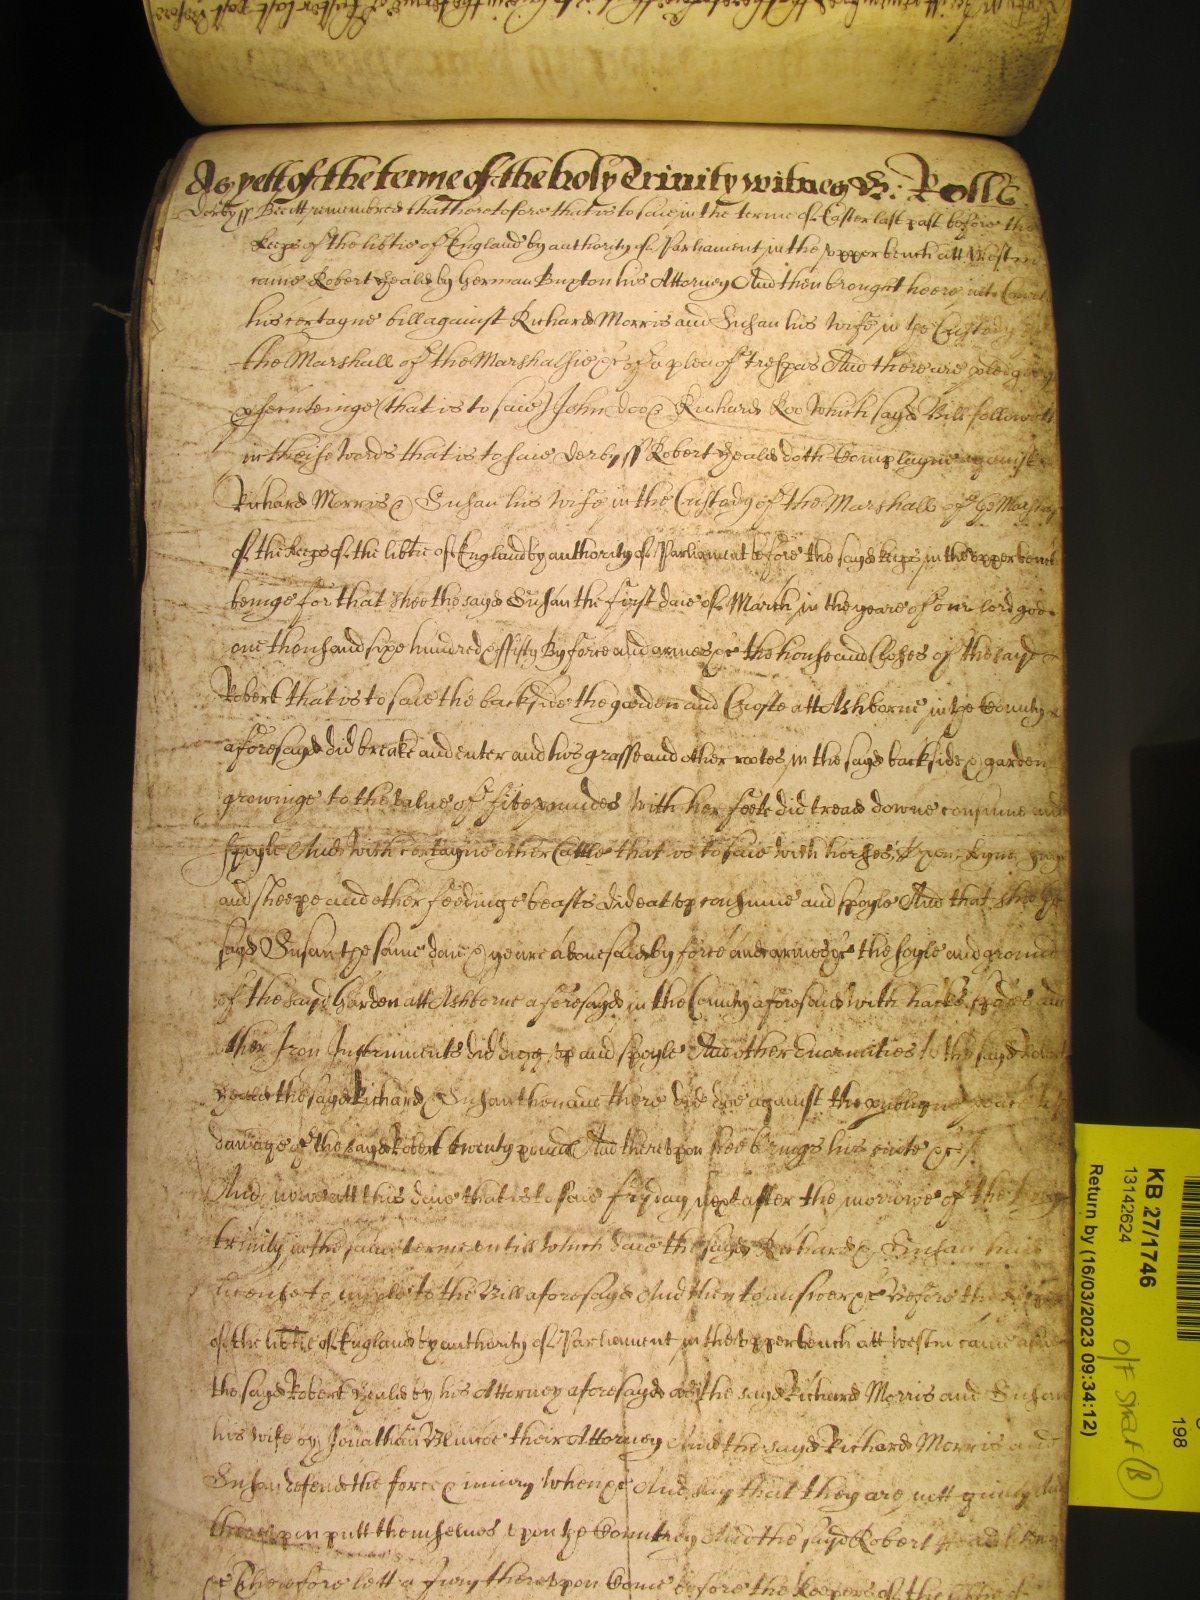 As yett of the terme of the holy Trinity witnes H: Rolle
Derby ss Be itt remembred that heretofore that is to saie in the terme of Easter last past before the
keeps of the libtie of England by authority of Parliament in the upper bench att Westm
came Robert Heald by German Buxton his Attorney And then brought heere into Court
his certayne bill against Richard Morris and Susan his wife in the Custody
the Marshall of the Marshalsie &c of a plea of Trespas And there are pledges
of psecuteinge (that is to saie) John doo & Richard Roo Which sayd Bill followeth
in theise words that is to saie Derby ss Robert Heald doth Complayne against
Richard Morris & Susan his wife in the Custody of the Marshall of the
of the keeps of the libtie of England by authority of Parliament before the sayd keeps in the upper bench
beinge for that shee the sayd Susan the first daie of March in the yeare of our lord god
one thousand sixe hundred & fifty By force and armes &c the house and Closes of the sayd
Robert that is to saie the backside the garden and Crofte att Ashborne in the County
aforesayd did breake and enter and his grasse and other rootes in the sayd backside & garden
growinge to the value of five poundes with her feete did tread downe consume and
spoyle And with certayne other Cattle that is to saie with horses Oxen Kyne
and sheepe and other feedinge beasts did eat up consume and spoyle And that shee the
sayd Susan the same daie & yeare abovesaid by force and armes &c the soyle and ground
of the sayd Garden att Ashborne aforesayd in the County aforesaid with hacks spades and
other Iron Instruments did digg up and spoyle And other Enormities to the sayd Robert
Heald the sayd Richard & Susan then and there did doe against the publique peace
damage of the sayd Robert twenty pound And thereupon hee brings his suite &c
And nowe att this daie that is to saie fryday next after the morrowe of the holy
trinity in the same terme untill which daie the sayd Richard & Susan had
licence to imple to the Bill aforesayd And then to answer &c Before the keeps
of the libtie of England by authority of Parliament in the upper bench att westm came
the sayd Robert Heald by his Attorney aforesayd and the sayd Richard Morris and Susan
his wife by Jonathan their Attorney And the sayd Richard Morris and
Susan defend the force & iniury when &c And say that they are nott guilty And
thereupon putt themselves upon the Countrey And the sayd Robert Heald
&c Therefore lett a Jury thereupon Come before the keepers of the libtie of
KB 27/1746
13142624
Return by (16/03/2023 09:34:12)
198